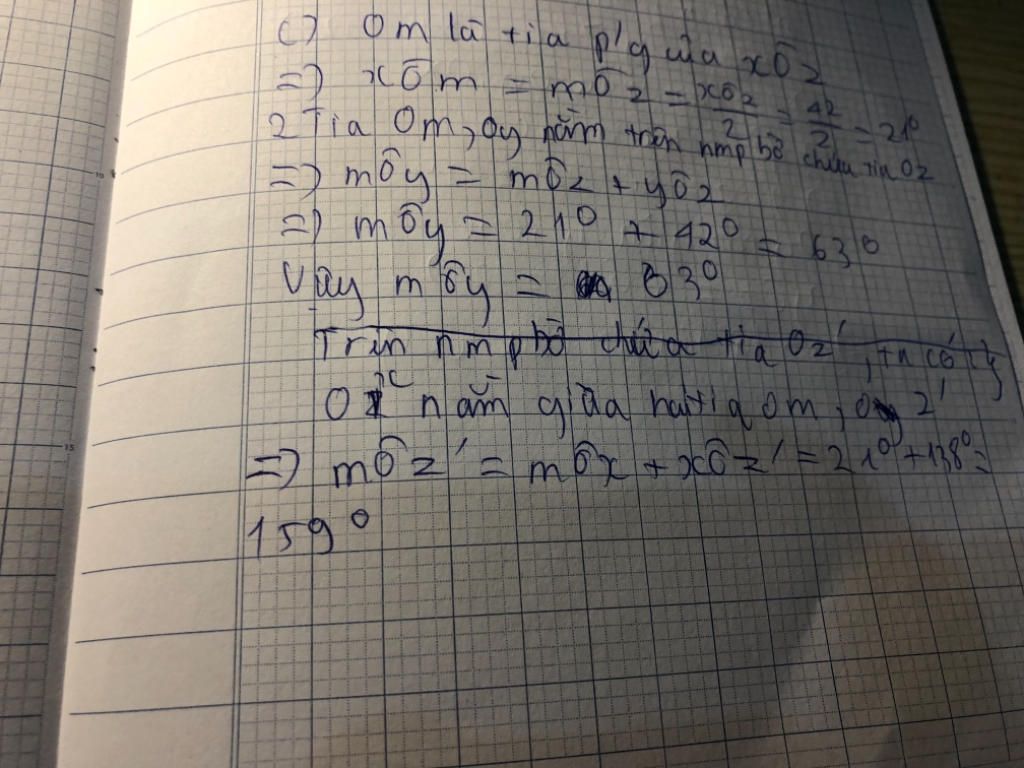 c) Om là tia p/g của xÔz
=> xÔm = mÔz = xÔz/2 = 42/2 = 21⁰
2 Tia Om, Oy nằm trên nmp bờ chứa tia Oz
=> mÔy = mÔz + yÔz
=> mÔy = 21⁰ + 42⁰ = 63⁰
Vậy mÔy = 63⁰
Trên nmp bờ chứa tia Oz', ta có tia
Ox nằm giữa hai tia Om, Oz'
=> mÔz' = mÔx + xÔz' = 21⁰ + 138⁰ =
159⁰